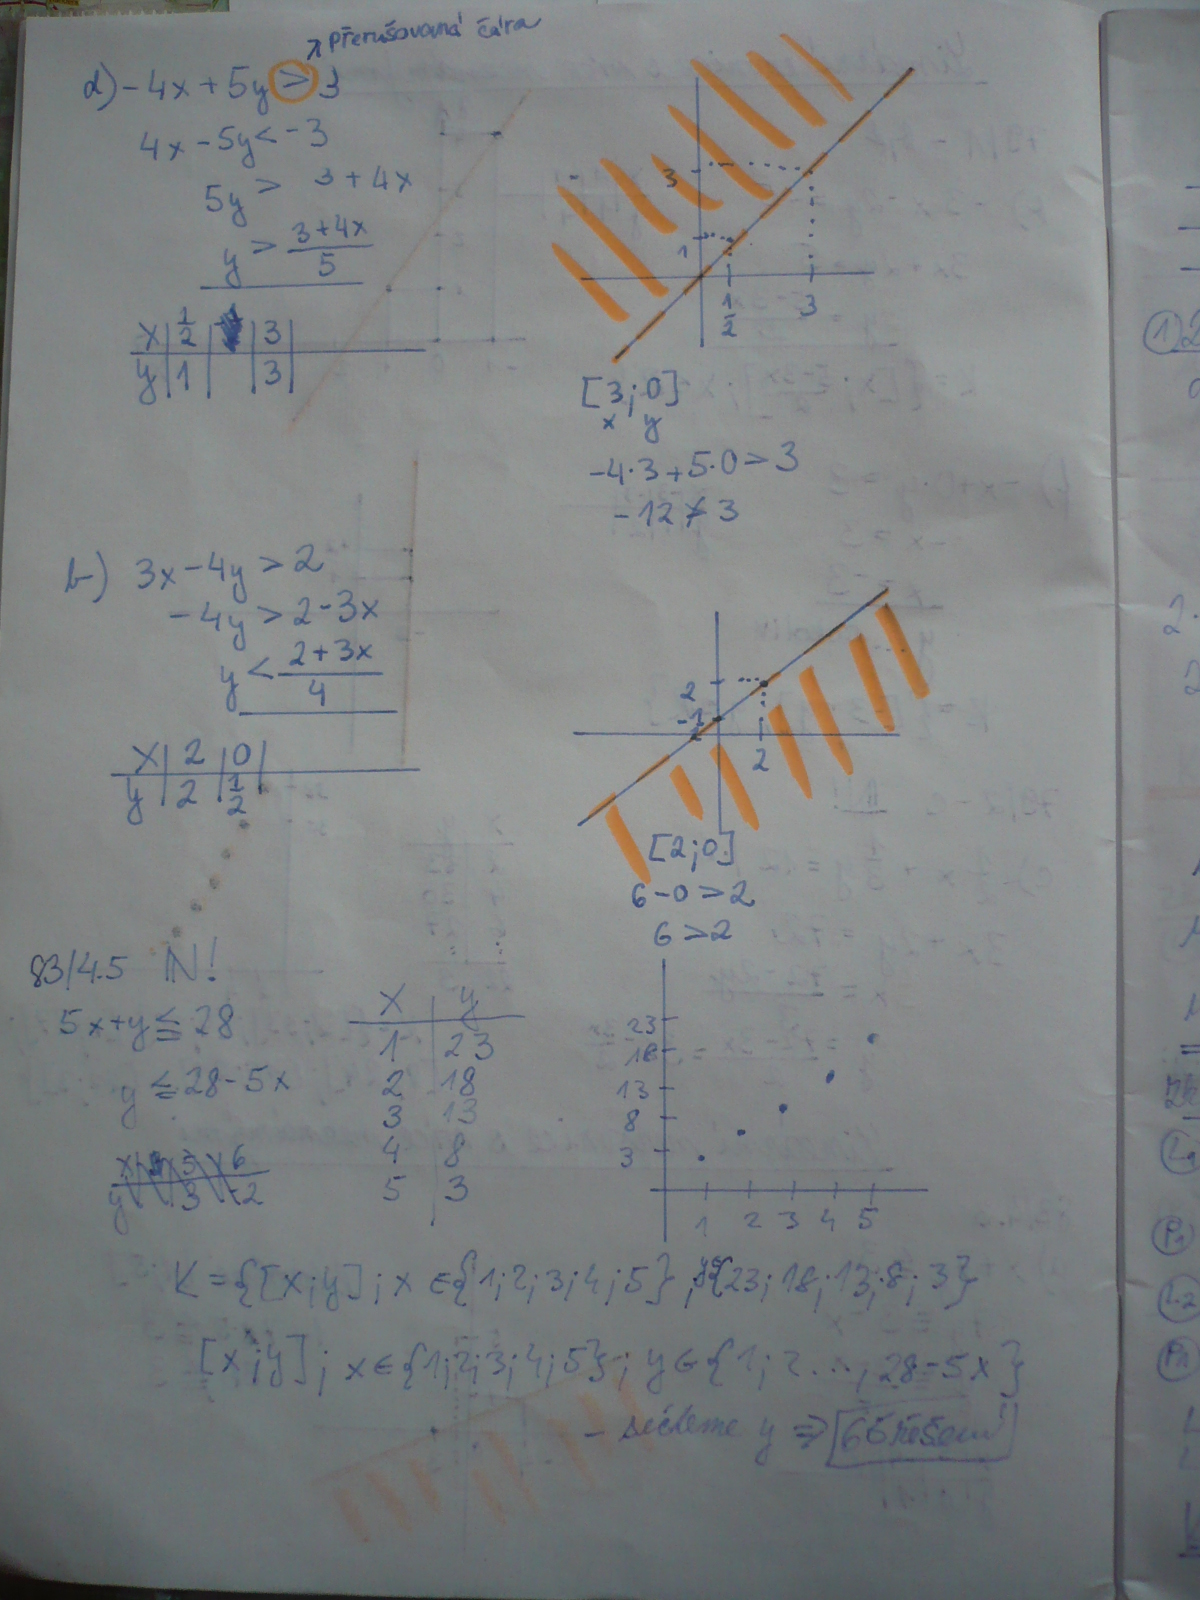 přerušovaná čára
d) -4x + 5y > 3
4x - 5y < -3
5y > 3 + 4x
y > \frac{3+4x}{5}
x | \frac{1}{2} | | 3 |
y | 1 | | 3 |
3
1
\frac{1}{2} 3
[3; 0]
x y
-4·3 + 5·0 > 3
-12 ≯ 3
b) 3x - 4y > 2
-4y > 2 - 3x
y < \frac{2+3x}{4}
x | 2 | 0 |
y | 2 | \frac{1}{2} |
2
-1
2
[2; 0]
6 - 0 > 2
6 > 2
83/4.5 N!
5x + y ≦ 28
y ≦ 28 - 5x
x | y
1 | 23
2 | 18
3 | 13
4 | 8
5 | 3
23
18
13
8
3
1 2 3 4 5
K = {[x; y]; x ∈ {1; 2; 3; 4; 5}, y∈{23; 18; 13; 8; 3}
[x; y]; x ∈ {1; 2; 3; 4; 5}; y ∈ {1; 2 ..., 28 - 5x}
- sečteme y ⇒ řešení